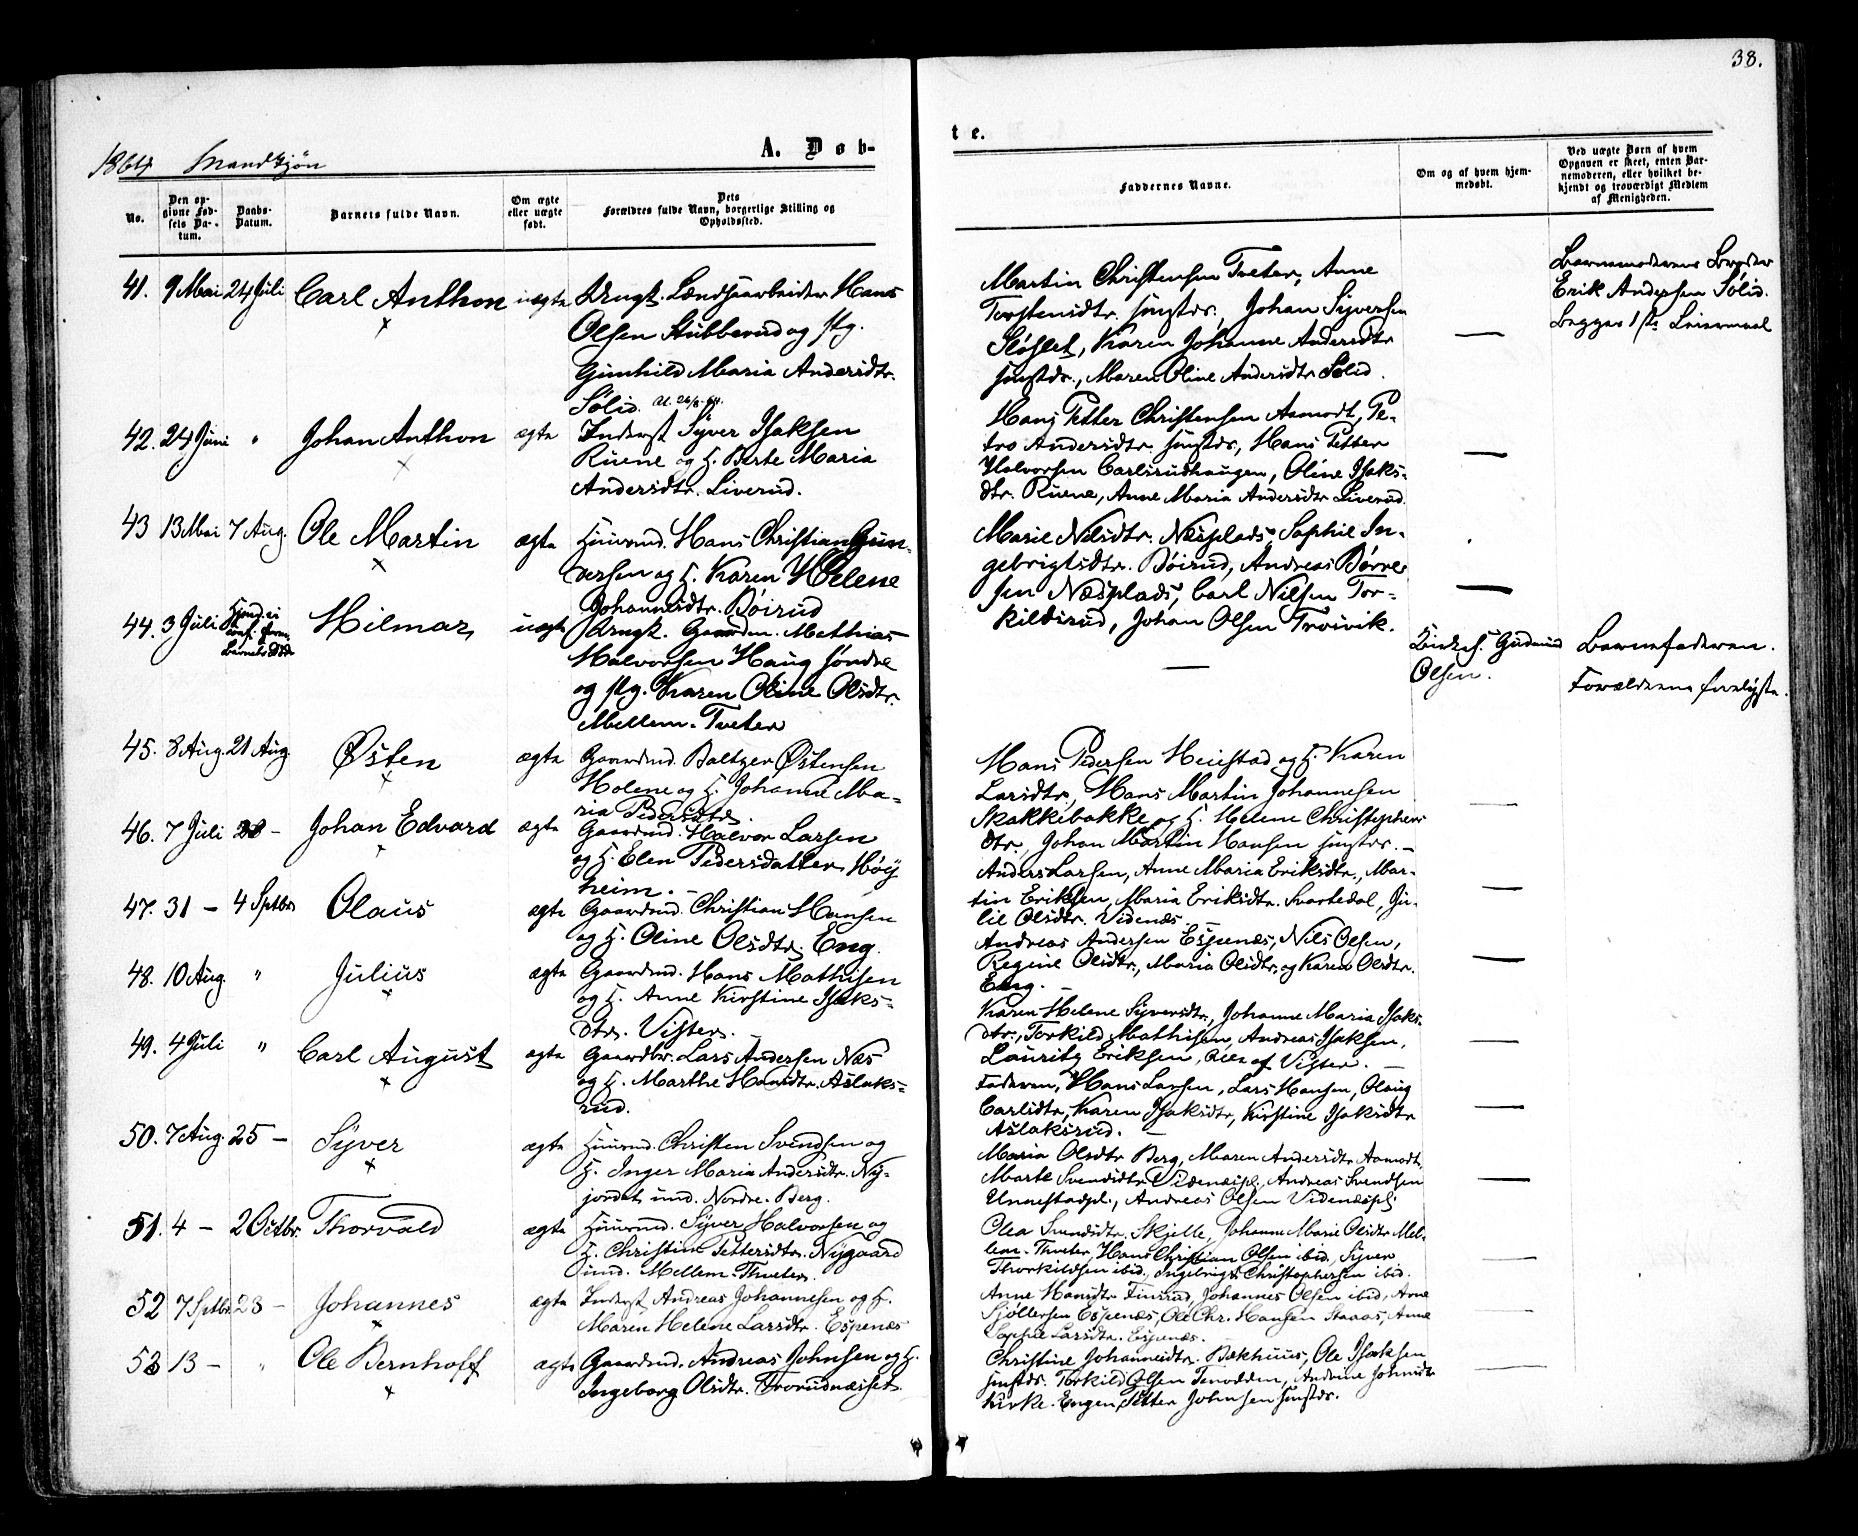 38.
1864 Mandkjøn
A. Døb-
te.
No.
Den op-
givne Fød-
sels Da-
tum.
Daabs-
Datum.
Barnets fulde Navn.
Om ægte
eller uægte
født.
Dets
Forældres fulde Navn, borgerlige Stilling og
Opholdssted.
Faddernes Navne.
Om og af hvem hjem-
medøbt.
Ved uægte Børn af hvem
Opgaven er skeet, enten Bar-
nemoderen, eller hvilket be-
kjendt og troværdigt Medlem
af Menigheden.
41. 9 Mai 24 Juli Carl Anthon uægte Ungk. Lændsarbeider Hans
Olsen Stubberud og Pg.
Gunhild Maria Andersdtr.
Sølid.
Martin Christensen Tveter, Anne
Torstensdtr. smstds., Johan Syversen
Karen Johanne Andersdtr
smstds., Maren Oline Andersdtr Sølid.
—
Barnemoderens Broder
Erik Andersen Sølid.
Begges 1ste Leiermaal
42. 24 Juni " Johan Anthon ægte Inderst Syver Isaksen
Ruene og H. Berte Maria
Andersdtr. Liverud.
Hans Petter Christensen Aamodt, Pe-
tro Andersdtr smstds., Hans Petter
Halvorsen Carlsrudhaugen, Oline Isaks-
dtr. Ruene, Anne Maria Andersdtr Liverud.
—
43 13 Mai 7 Aug. Ole Martin ægte Huusmd. Hans Christian Gun-
dersen og H. Karen Helene
Johannesdtr. Bøirud
Marie Nilsdtr. Næsplads, Sophie In-
gebrigtsdtr. Bøirud, Andreas Børre-
sen Næsplads, Carl Nilsen Tor-
kildsrud, Johan Olsen Troivik.
—
44. 3 Juli Hilmar uægte Ungk. Gaardm. Mathias
Halvorsen Haug søndre
og Pg. Karen Oline Olsdtr.
Mellem-Tveter
—
Kirkes. Gudmund
Olsen.
Barnefaderen.
Forældrene
45. 8 Aug. 21 Aug. Østen ægte Gaardmd. Baltzer Østensen
Holene og H. Johanne Ma-
ria Pedersdtr.
Hans Pedersen Heiestad og H. Karen
Larsdtr., Hans Martin Johannesen
Skakkibakke og H. Helene Christophers-
dtr., Johan Martin Hansen smstds. —
46. 7 Juli 28 — Johan Edvard ægte Gaardmd. Halvor Larsen
og H. Elen Pedersdatter Høy-
heim. —
Anders Larsen, Anne Maria Eriksdtr., Mar-
tin Eriksen, Maria Eriksdtr. Svartedal, Ju-
lie Olsdtr. Videnæs. —
47. 31 — 4 Sptbr Olaus ægte Gaardmd. Christian Hansen
og H. Oline Olsdtr. Eng.
Andreas Andersen Espenæs, Nils Olsen,
Regine Olsdtr., Maria Olsdtr. og Karen Olsdtr.
Eng. —
48. 10 Aug. " Julius ægte Gaardmd. Hans Mathisen
og H. Anne Kirstine Isaks-
dtr. Vister. —
Karen Helene Syversdtr., Johanne Maria Isaks-
dtr., Torkild Mathisen, Andreas Isaksen,
Lauritz Eriksen, Alle af Vister. —
49. 4 Juli " Carl August ægte Gaardbr. Lars Andersen Næs
og H. Marthe Hansdtr. Aslaks-
rud.
Faderen, Hans Larsen, Lars Hansen, Olaug
Carlsdtr., Karen Isaksdtr., Kirstine Isaksdtr
Aslaksrud. —
50. 7 Aug. 25 — Syver ægte Huusmd. Christen Svendsen og
H. Inger Maria Andersdtr. Ny-
jordet und. Nordre-Berg.
Maria Olsdtr Berg, Maren Andersdtr Aamodt,
Marte Svendsdtr. Videnæspl., Andreas Svendsen
Unnestadpl., Andreas Olsen Videnæspl.
—
51. 4 — 2 Octbr. Thorvald ægte Huusmd. Syver Halvorsen og
H. Christine Pettersdtr. Nygaard
und. Mellem-Thveter.
Olea Svendsdtr. Skjelle, Johanne Marie Olsdtr Mel-
lem-Thveter, Hans Christian Olsen ibid., Syver
Thorkildsen ibid., Ingebrigt Christophersen ibid.
—
52 7 Sptbr 23 — Johannes ægte Inderst Andreas Johannesen og H.
Maren Helene Larsdtr. Espenæs
Anne Hansdtr Finrud, Johannes Olsen ibid, Arne
Sjøllersen Espenæs, Ole Chr. Hansen Staaas, Anne
Sophie Larsdtr. Espenæs.
—
53 13 — " Ole Bernhoff ægte Gaardmd. Andreas Johnsen og H.
Ingeborg Olsdtr. Frorudnæsset
Christine Johannesdtr. Bækhuus, Ole Isaksen
smstds. Torkild Olsen Tenodden, Andrine Johnsdtr
Kirke-Engen, Petter Johnsen smstds.
—